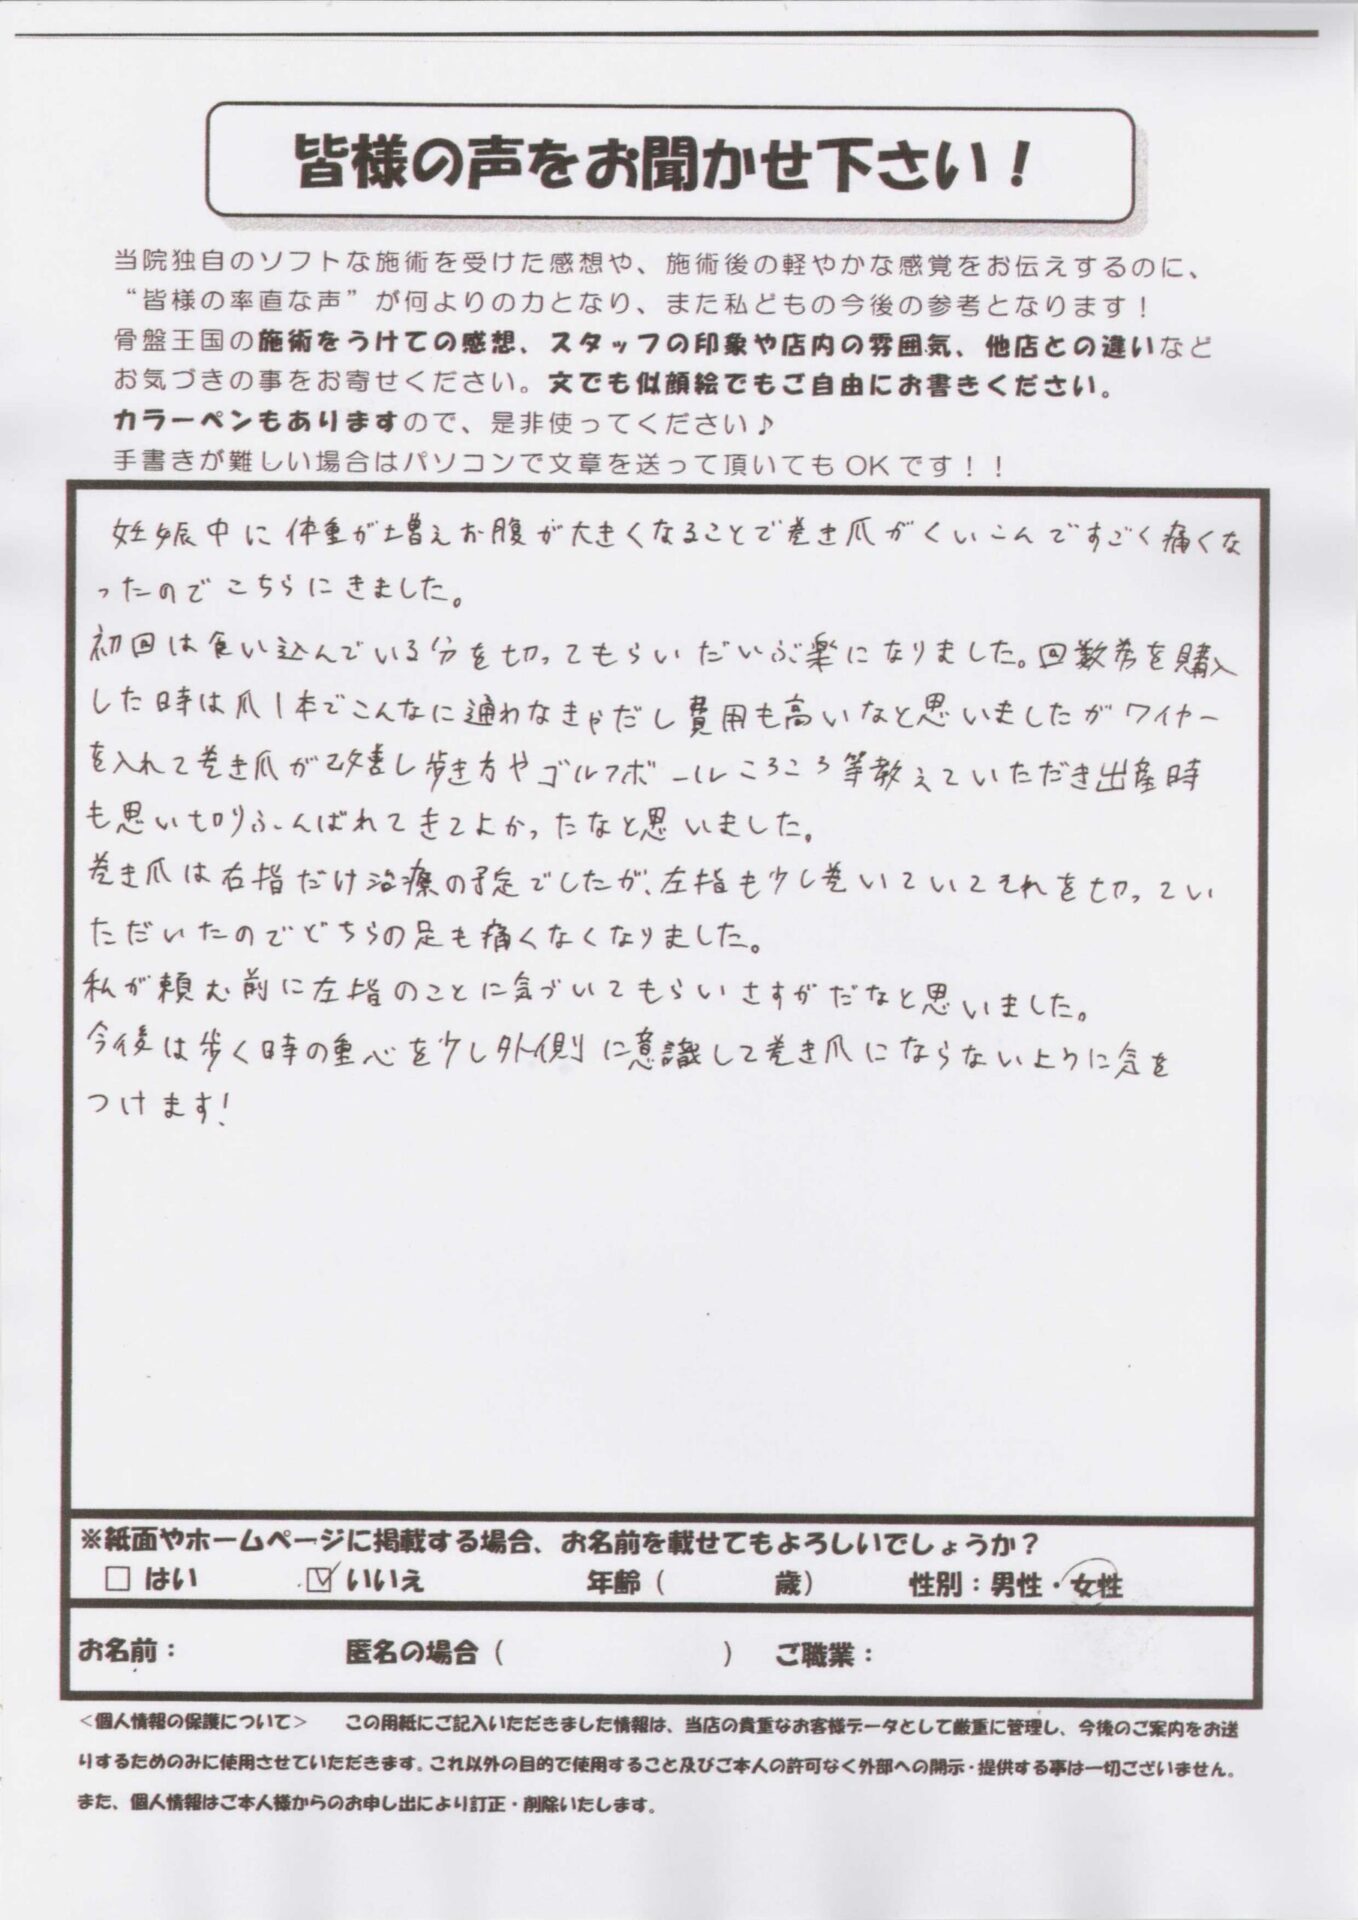 皆様の声をお聞かせ下さい！
当院独自のソフトな施術を受けた感想や、施術後の軽やかな感覚をお伝えするのに、
“皆様の率直な声”が何よりの力となり、また私どもの今後の参考となります！
骨盤王国の施術をうけての感想、スタッフの印象や店内の雰囲気、他店との違いなど
お気づきの事をお寄せください。文でも似顔絵でもご自由にお書きください。
カラーペンもありますので、是非使ってください♪
手書きが難しい場合はパソコンで文章を送って頂いてもOKです！！
妊娠中に体重が増えお腹が大きくなることで巻き爪がくいこんですごく痛くな
ったのでこちらにきました。
初回は食い込んでいる分を切ってもらいだいぶ楽になりました。回数券を購入
した時は爪1本でこんなに通わなきゃだし費用も高いなと思いましたがワイヤー
を入れて巻き爪が改善し歩き方やゴルフボールころころ等教えていただき出産時
も思い切りふんばれてきてよかったなと思いました。
巻き爪は右指だけ治療の予定でしたが、左指も少し巻いていてそれを切ってい
ただいたのでどちらの足も痛くなくなりました。
私が頼む前に左指のことに気づいてもらいさすがだなと思いました。
今後は歩く時の重心を少し外側に意識して巻き爪にならないように気を
つけます!
※紙面やホームページに掲載する場合、お名前を載せてもよろしいでしょうか？
□ はい ☑ いいえ 年齢（ 歳） 性別：男性・女性
お名前： 匿名の場合（ ） ご職業：
＜個人情報の保護について＞ この用紙にご記入いただきました情報は、当店の貴重なお客様データとして厳重に管理し、今後のご案内をお送
りするためのみに使用させていただきます。これ以外の目的で使用すること及びご本人の許可なく外部への開示・提供する事は一切ございません。
また、個人情報はご本人様からのお申し出により訂正・削除いたします。